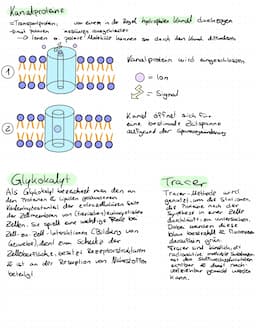 Kanalproteine
= Transportprotein, um einen in der Regel hydrophilen Kanal durchzogen
- sind
Ionen o. polare Moleküle können so durch den Kanal diffundieren
Kanalprotein wird eingeschlossen
1
= Ion
= Signal
2
Kanal öffnet sich für
eine bestimmte Zeitspanne
aufgrund der Spannungsänderung
Glykokalyx
Als Glykokalyx bezeichnet man den an
den Proteinen & Lipiden gebundenen
Kohlenhydratanteil der extrazellulären Seite
der Zellmembran von (tierischen) eukaryotischen
Zellen. Sie spielt eine wichtige Rolle bei
Zell-zu-Zell-Interaktionen (Bildung von
Geweben), dient zum Schutz der
Zelloberfläche, besitzt Rezeptorstrukturen
& ist an der Resorption von Nährstoffen
beteiligt
Tracer
Tracer-Methode wird
genutzt, um die Stationen,
das Proteine nach der
Synthese in einer Zelle
durchläuft, zu untersuchen.
Dabei werden diese
blau dargestellt &
daraufhin grün.
Tracer sind künstliche, oft
radioaktive, markierte Substanzen
mit
sichtbar & damit nach-
verfolgbar gemacht werden
kann.